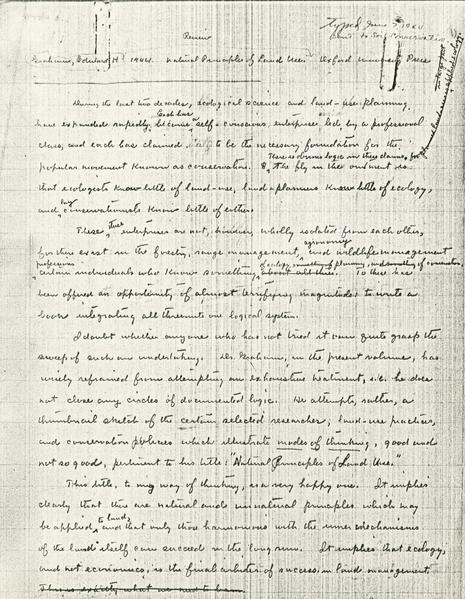 Review
Typed June 1944
Sent to Soil Conservation
Graham, Edward H. 1944. Natural Principles of Land Use. Oxford University Press
During the last two decades, ecological science and land-use planning
have expanded rapidly. Each has become self-conscious enterprise led by a professional
class, and each has claimed to be the necessary foundation for the
There is obvious logic in these claims, for
popular movement known as conservation. The fly in the ointment is
that ecologists know little of land-use, land-planners know little of ecology,
and lay conservationists know little of either.
These three enterprises are not, however, wholly isolated from each other,
agronomy
for there exist in the forestry, range management, and wildlife management
professions of ecology, something of planning, and something of conservation.
certain individuals who know something about all three. To these has
been offered an opportunity of almost terrifying magnitude: to write a
book integrating all three into one logical system.
I doubt whether anyone who has not tried it can quite grasp the
sweep of such an undertaking. Dr. Graham, in the present volume, has
wisely refrained from attempting an exhaustive treatment, i.e. he does
not close any circles of documented logic. He attempts, rather, a
thumbnail sketch of the certain selected researches, land-use practices,
and conservation policies which illustrate modes of thinking, good and
not so good, pertinent to his title: "Natural Principles of Land Use."
This title, to my way of thinking, is a very happy one. It implies
clearly that there are natural and unnatural principles which may
be applied to land, and that only those harmonious with the inner mechanisms
of the land itself can succeed in the long run. It implies that ecology,
and not economics, is the final arbiter of success in land management.
This is exactly what we need to learn.